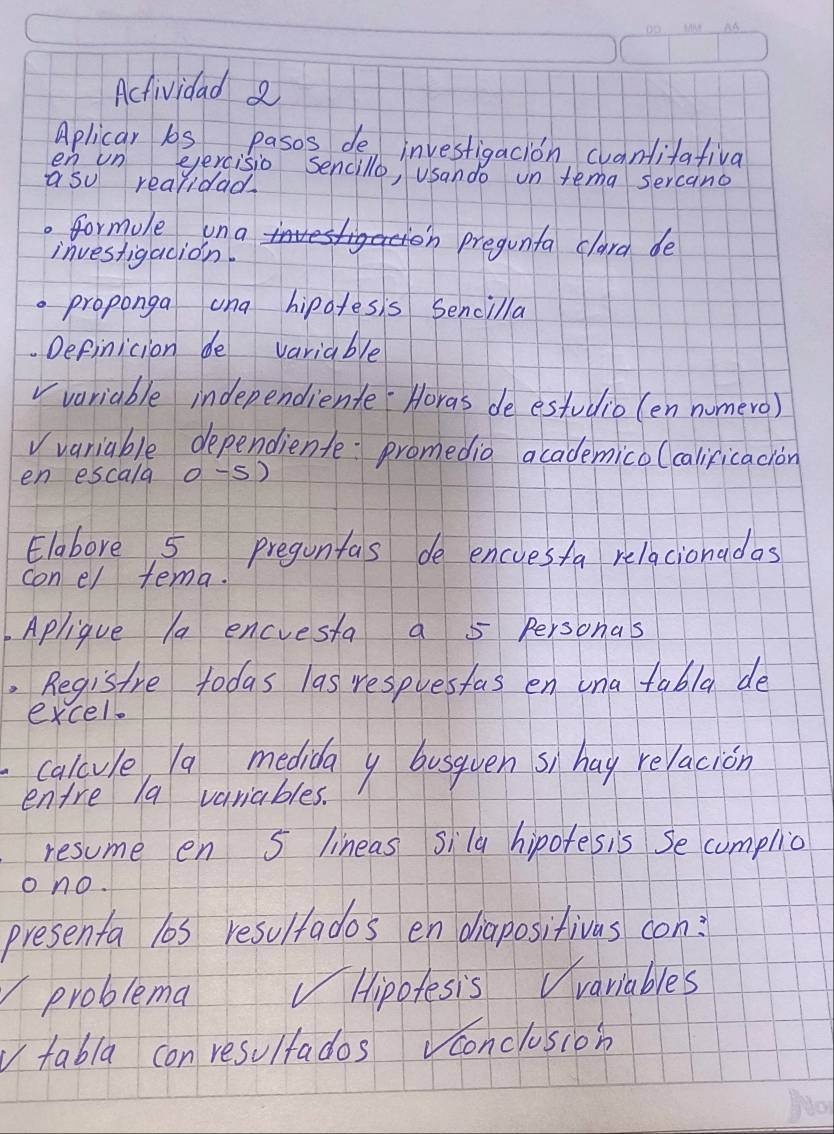 DD MM AA
Actividad 2
Aplicar los pasos de investigación cuantitativa
en un ejercisio sencillo, usando un tema sercano
a su realidad.
• formule una investigación pregunta clara de
investigación.
• proponga una hipotesis sencilla
. Definicion de variable
✓ variable independiente: Horas de estudio (en numero)
✓ variable dependiente: promedio academico (calificación
en escala 0-5)
Elabore 5 preguntas de encuesta relacionadas
con el tema.
. Aplique la encuesta a 5 Personas
. Registre todas las respuestas en una tabla de
excel.
. calcule la medida y busquen si hay relación
entre la variables.
. resume en 5 lineas si la hipotesis se cumplio
o no.
presenta los resultados en diapositivas con:
✓ problema ✓ Hipotesis ✓ variables
✓ tabla con resultados ✓ conclusión